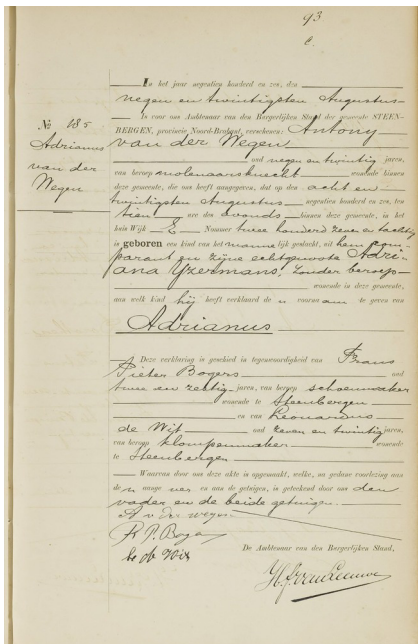 93
c.
In het jaar negentien honderd en zes, den
negen en twintigsten Augustus
is voor ons Ambtenaar van den Burgerlijken Stand der gemeente STEEN-
BERGEN, provincie Noord-Brabant, verschenen: Antony
van der Wegen
oud negen en twintig jaren,
van beroep molenaarsknecht wonende binnen
deze gemeente, die ons heeft aangegeven, dat op den acht en
twintigsten Augustus negentien honderd en zes, ten
tien ure des avonds binnen deze gemeente, in het
huis Wijk E Nommer twee honderd zeven en tachtig
is geboren een kind van het mannelijk geslacht, uit hem com-
parant en zijne echtgenoote Adri-
ana Yzermans, zonder beroep
wonende in deze gemeente,
aan welk kind hij heeft verklaard de n voornaam te geven van
Adrianus
No 185
Adrianus
van der
Wegen
Deze verklaring is geschied in tegenwoordigheid van Frans
Pieter Bogers oud
twee en zestig jaren, van beroep schoenmaker
wonende te Steenbergen
en van Leonardus
de Wit oud zeven en twintig jaren,
van beroep klompenmaker wonende
te Steenbergen
Waarvan door ons deze akte is opgemaakt, welke, na gedane voorlezing aan
de n aange ver en aan de getuigen, is geteekend door ons den
vader en de beide getuigen
A v der wegen
De Ambtenaar van den Burgerlijken Stand,